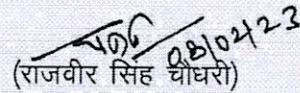 08/04/23
(राजवीर सिंह चौधरी)